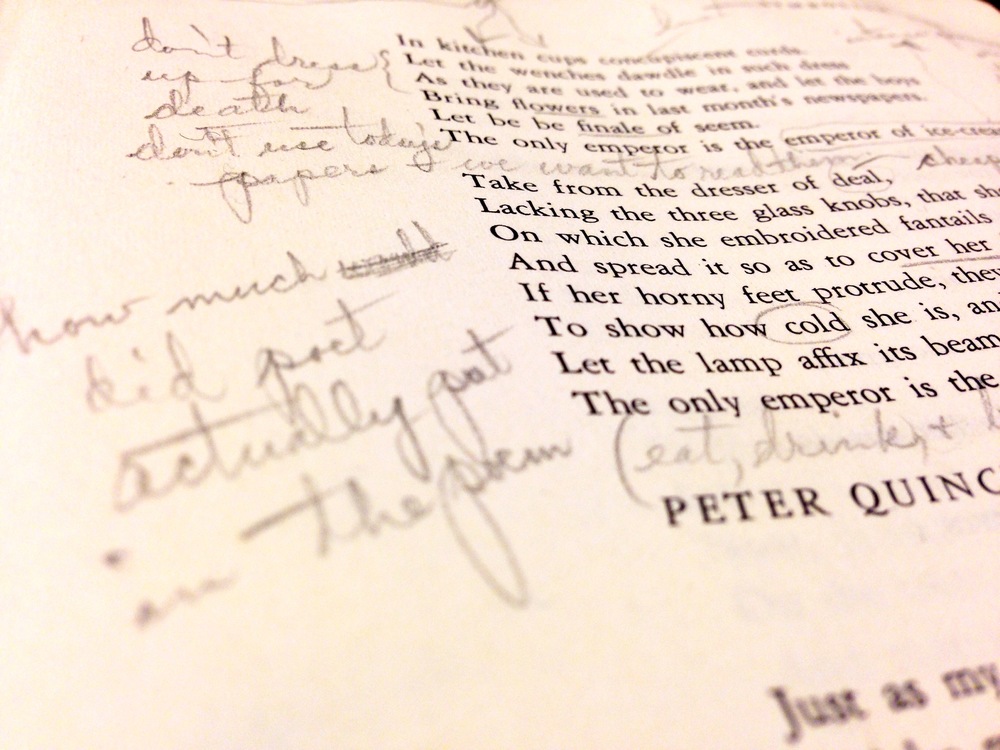 don't dress
up for
death
don't use today's
papers we want to read them cheap
In kitchen cups concupiscent curds.
Let the wenches dawdle in such dress
As they are used to wear, and let the boys
Bring flowers in last month's newspapers.
Let be be finale of seem.
The only emperor is the emperor of ice-crea
Take from the dresser of deal,
Lacking the three glass knobs, that sh
On which she embroidered fantails
And spread it so as to cover her
If her horny feet protrude, they
To show how cold she is, an
Let the lamp affix its beam
The only emperor is the
how much
did poet
actually put
in the poem
(eat, drink, +
PETER QUINC
Just as my